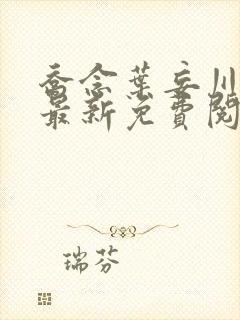 乔念葉妄川
最新免費閱
瑞芬